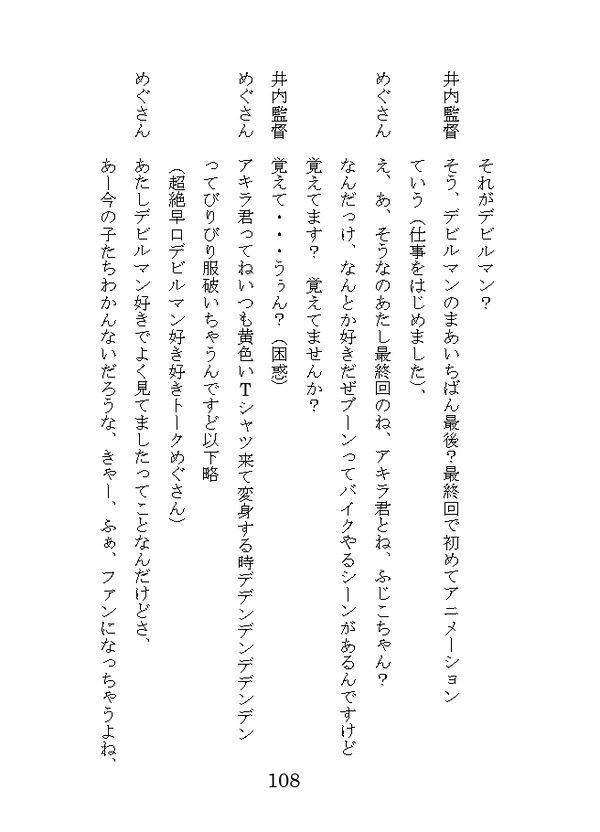 それがデビルマン？
井内監督　そう、デビルマンのまあいちばん最後？最終回で初めてアニメーション
ていう（仕事をはじめました）、
めぐさん　え、あ、そうなのあたし最終回のね、アキラ君とね、ふじこちゃん？
なんだっけ、なんとか好きだぜブーンってバイクやるシーンがあるんですけど
覚えてます？　覚えてませんか？
井内監督　覚えて・・・うぅん？（困惑）
めぐさん　アキラ君ってねいつも黄色いＴシャツ来て変身する時デデンデンデデンデン
ってびりびり服破いちゃうんですど以下略
（超絶早口デビルマン好き好きトークめぐさん）
めぐさん　あたしデビルマン好きでよく見てましたってことなんだけどさ、
あー今の子たちわかんないだろうな、きゃー、ふぁ、ファンになっちゃうよね、
108